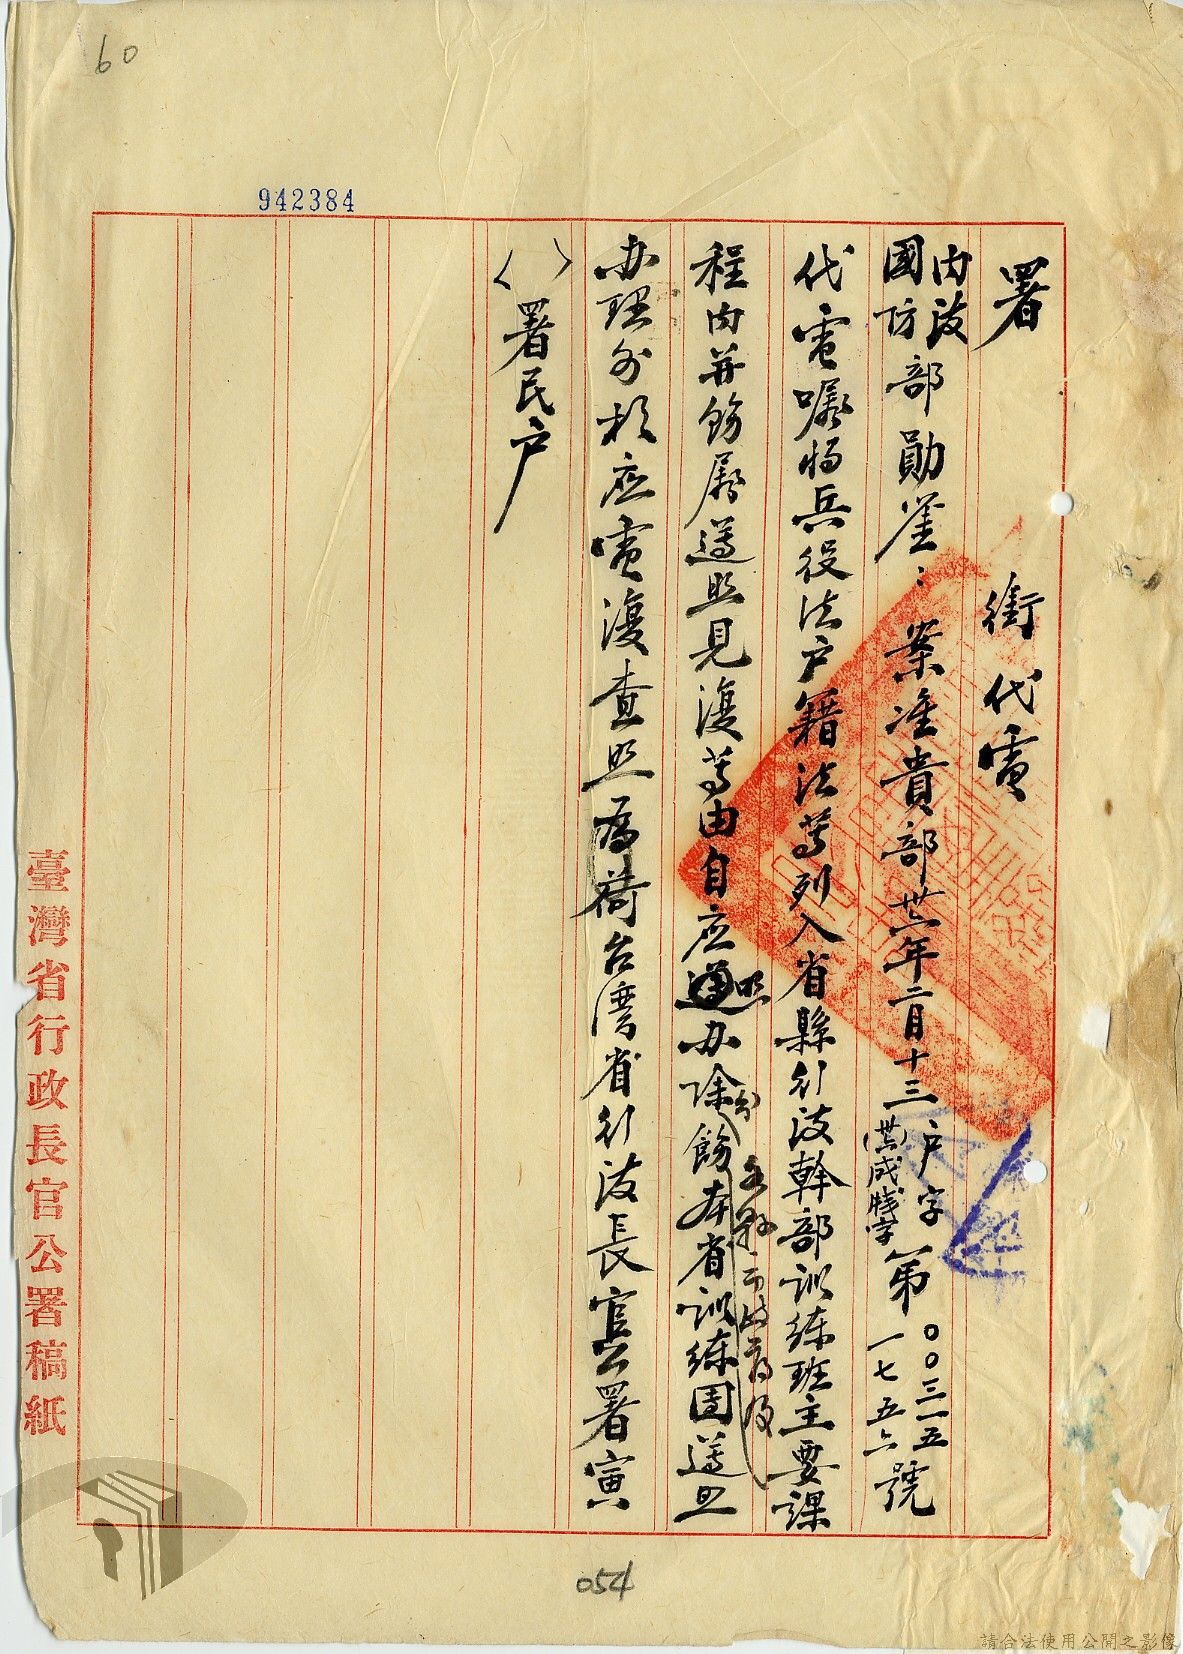 60
942384
署　銜代電
內政
國防部勛鑒：案准貴部卅六年二月十三戶字
(卅六)成賤字
第〇〇三一五
一七五六號
代電囑將兵役法戶籍法等列入省縣行政幹部訓練班主要課
程內并飭屬遵照見復等由自應照办除分飭各縣市政府及本省訓練團遵照
办理外相应電復查照為荷台湾省行政長官公署寅
（　）署民戶
臺灣省行政長官公署稿紙
054
請合法使用公開之影像